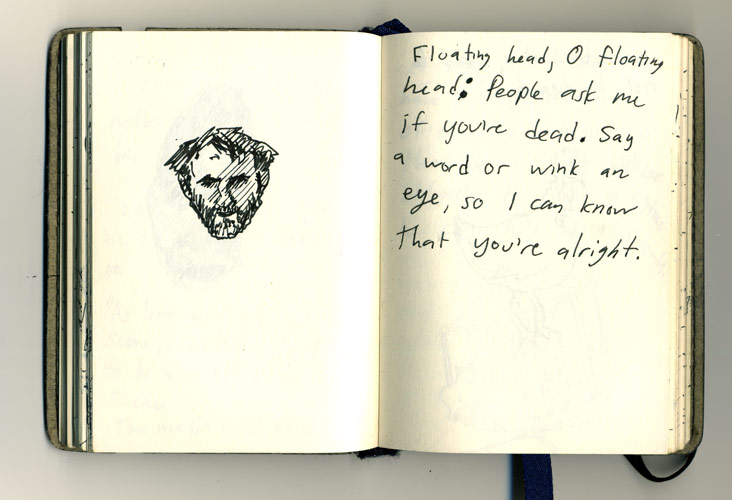 Floating head, O floating
head: People ask me
if you're dead. Say
a word or wink an
eye, so I can know
that you're alright.